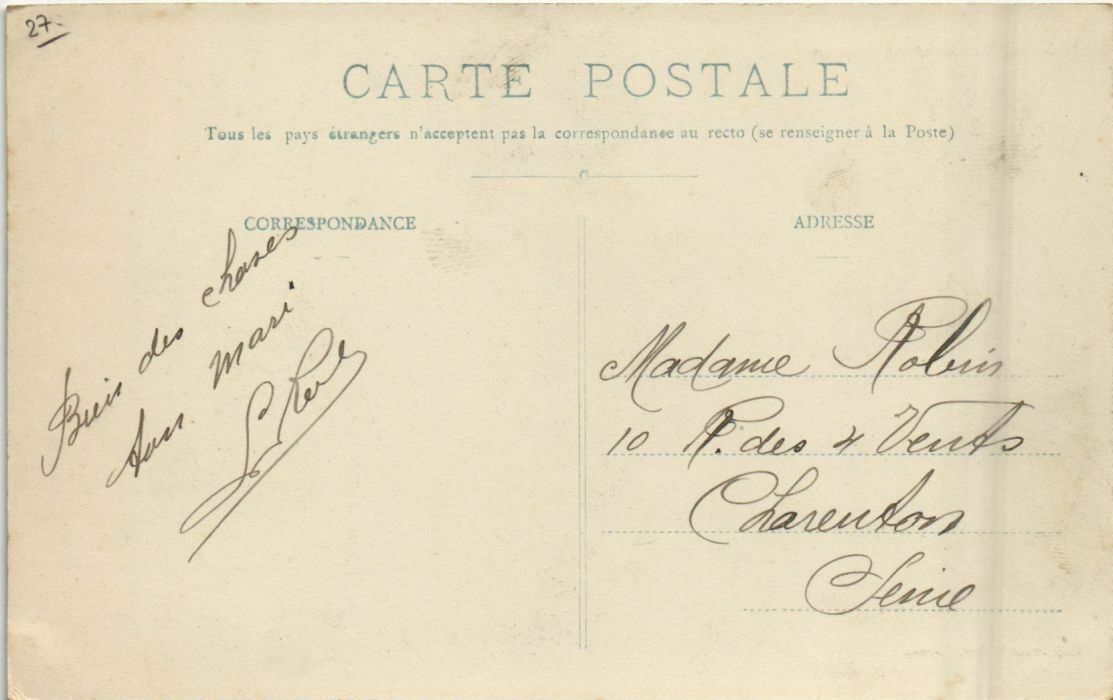 27.
CARTE POSTALE
Tous les pays étrangers n'acceptent pas la correspondance au recto (se renseigner à la Poste)
CORRESPONDANCE
Bien des choses
ton mari
ADRESSE
Madame Robin
10 R. des 4 Vents
Charenton
Seine